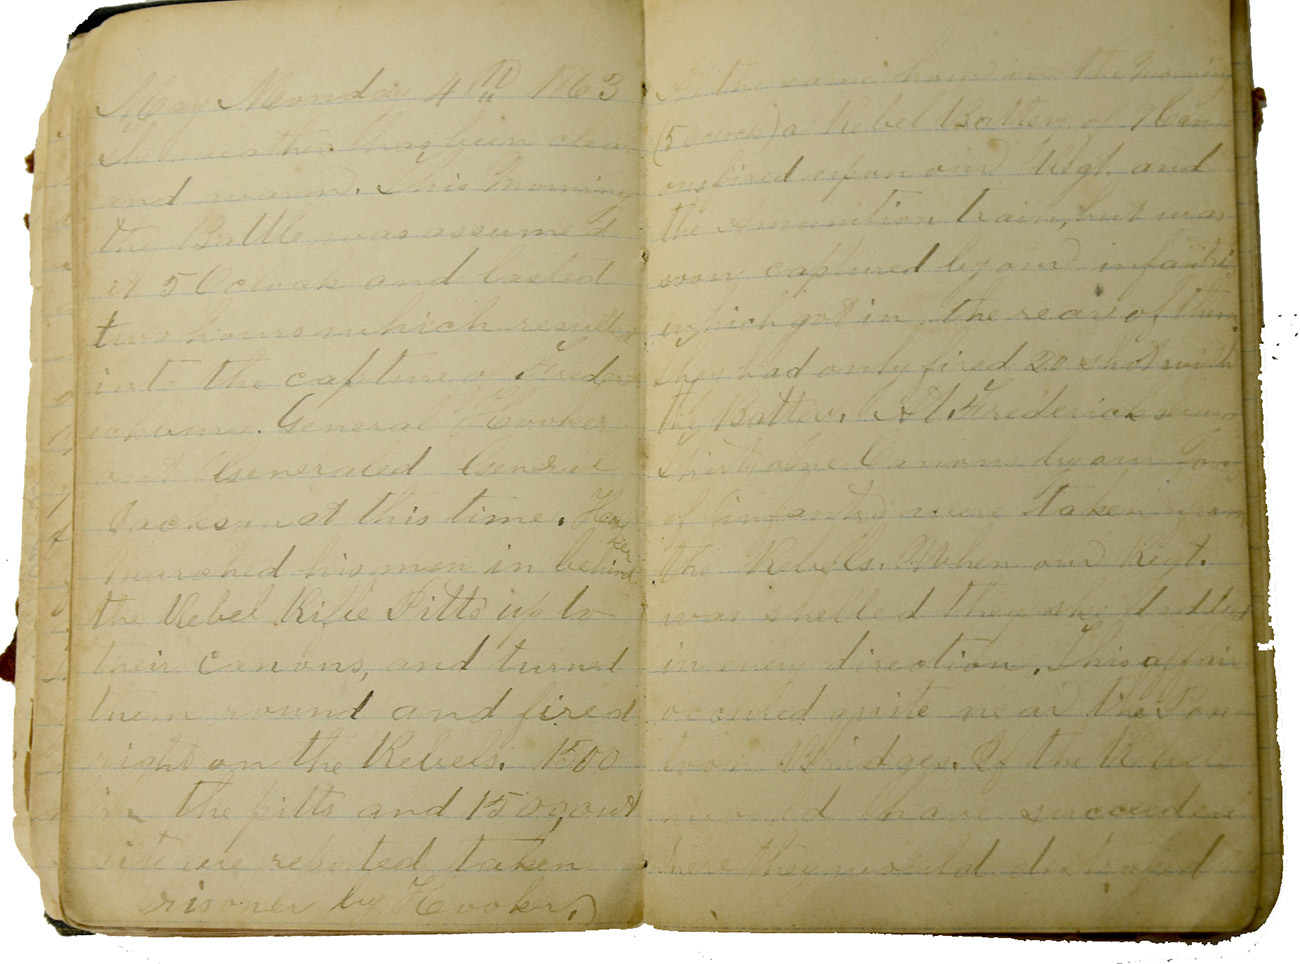 May Monday 4th 1863
The weather has been clear
and warm. This morning
the Battle was assumed
at 5 Oclock and lasted
two hours which resulted
into the capture of Freder
icksburg. General Hooker
out Generaled General
Jackson at this time. Hooker
marched his men in behind
the Rebel Rifle Pitts up to
their canons, and turned
them round and fired
right on the Rebels. 1500
in the pitts and 1500, out
side were reported taken
prisoner by Hooker.
At the same hour in the morning
(5 Oclock) a Rebel Battery of 7 Can
ons fired upon our Regt. and
the Amunition train, but was
soon captured by our infantry
which got in the rear of them
they had only fired 20 shot with
the Battery. At Fredericksburg
Thirty Canons by our
of infantry were taken from
the Rebells. When our Regt.
was shelled they
in every direction. This affair
occured quite near the Pon
toon Bridges. If the Rebels
would have succeeded
here they would destroyed